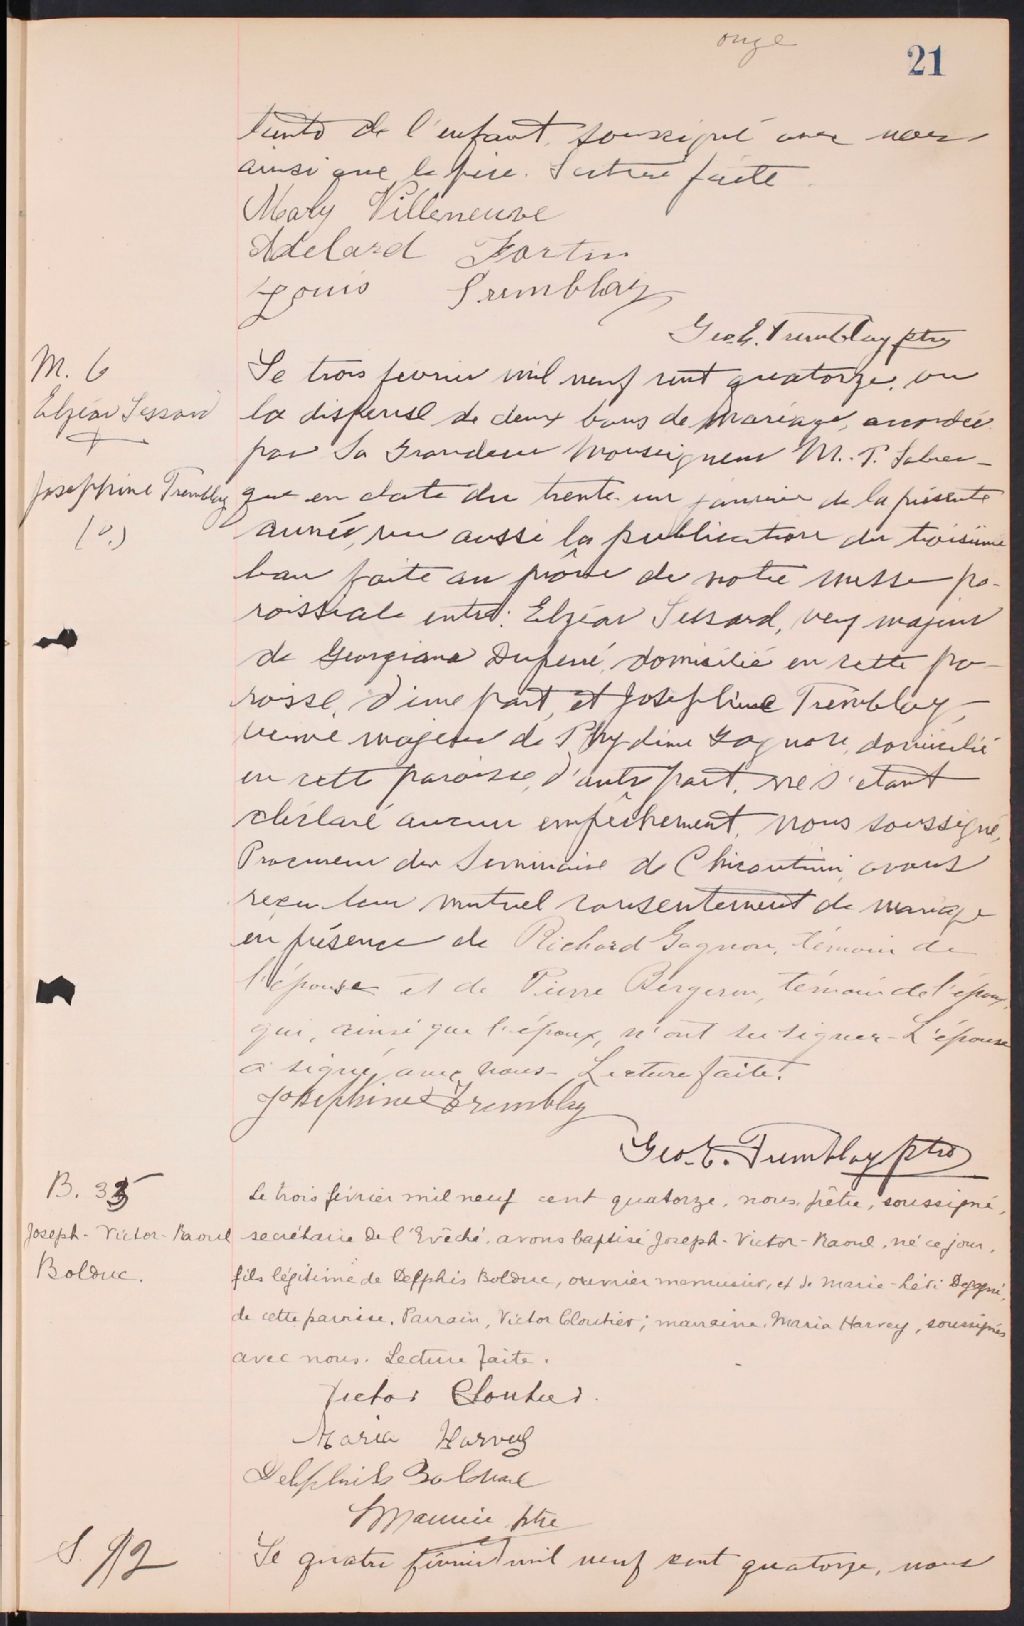 onze
21
tante de l'enfant, soussigné avec nous
ainsi que le père. Lecture faite.
Mary Villeneuve
Adelard Fortin
Louis Tremblay
Geo. E. Tremblay ptre
M. 6
Elzéar Lessard
+
Josephine Tremblay
(v.)
Le trois février mil neuf cent quatorze, vu
la dispense de deux bans de mariage, accordée
par Sa Grandeur Monseigneur M. T. Labrec-
que en date du trente-un janvier de la présente
année, vu aussi la publication du troisième
ban faite au prône de notre messe pa-
roissiale entre: Elzéar Lessard, veuf majeur
de Georgiana Dupéré, domicilié en cette pa-
roisse, d'une part, et Josephine Tremblay,
veuve majeure de Phydime Gagnon, domicilié
en cette paroisse, d'autre part, ne s'étant
déclaré aucun empêchement, nous soussigné,
Procureur du Seminaire de Chicoutimi, avons
reçu leur mutuel consentement de mariage
en présence de Richard Gagnon, témoin de
l'épouse et de Pierre Bergeron, témoin de l'époux,
qui, ainsi que l'époux, n'ont su signer - L'épouse
a signé avec nous - Lecture faite.
Josephine Tremblay
Geo. E. Tremblay ptre
B. 35
Joseph-Victor-Raoul
Bolduc.
Le trois février mil neuf cent quatorze, nous, prêtre, soussigné,
secrétaire de l'Evêché, avons baptisé Joseph-Victor-Raoul, né ce jour,
fils légitime de Delphis Bolduc, ouvrier menuisier, et de Marie-Léda Gagné,
de cette paroisse. Parrain, Victor Cloutier; marraine, Maria Harvey, soussignés
avec nous. Lecture faite.
Victor Cloutier.
Maria Harvey
Delphis Bolduc
ptre
S. 92
Le quatre février mil neuf cent quatorze, nous